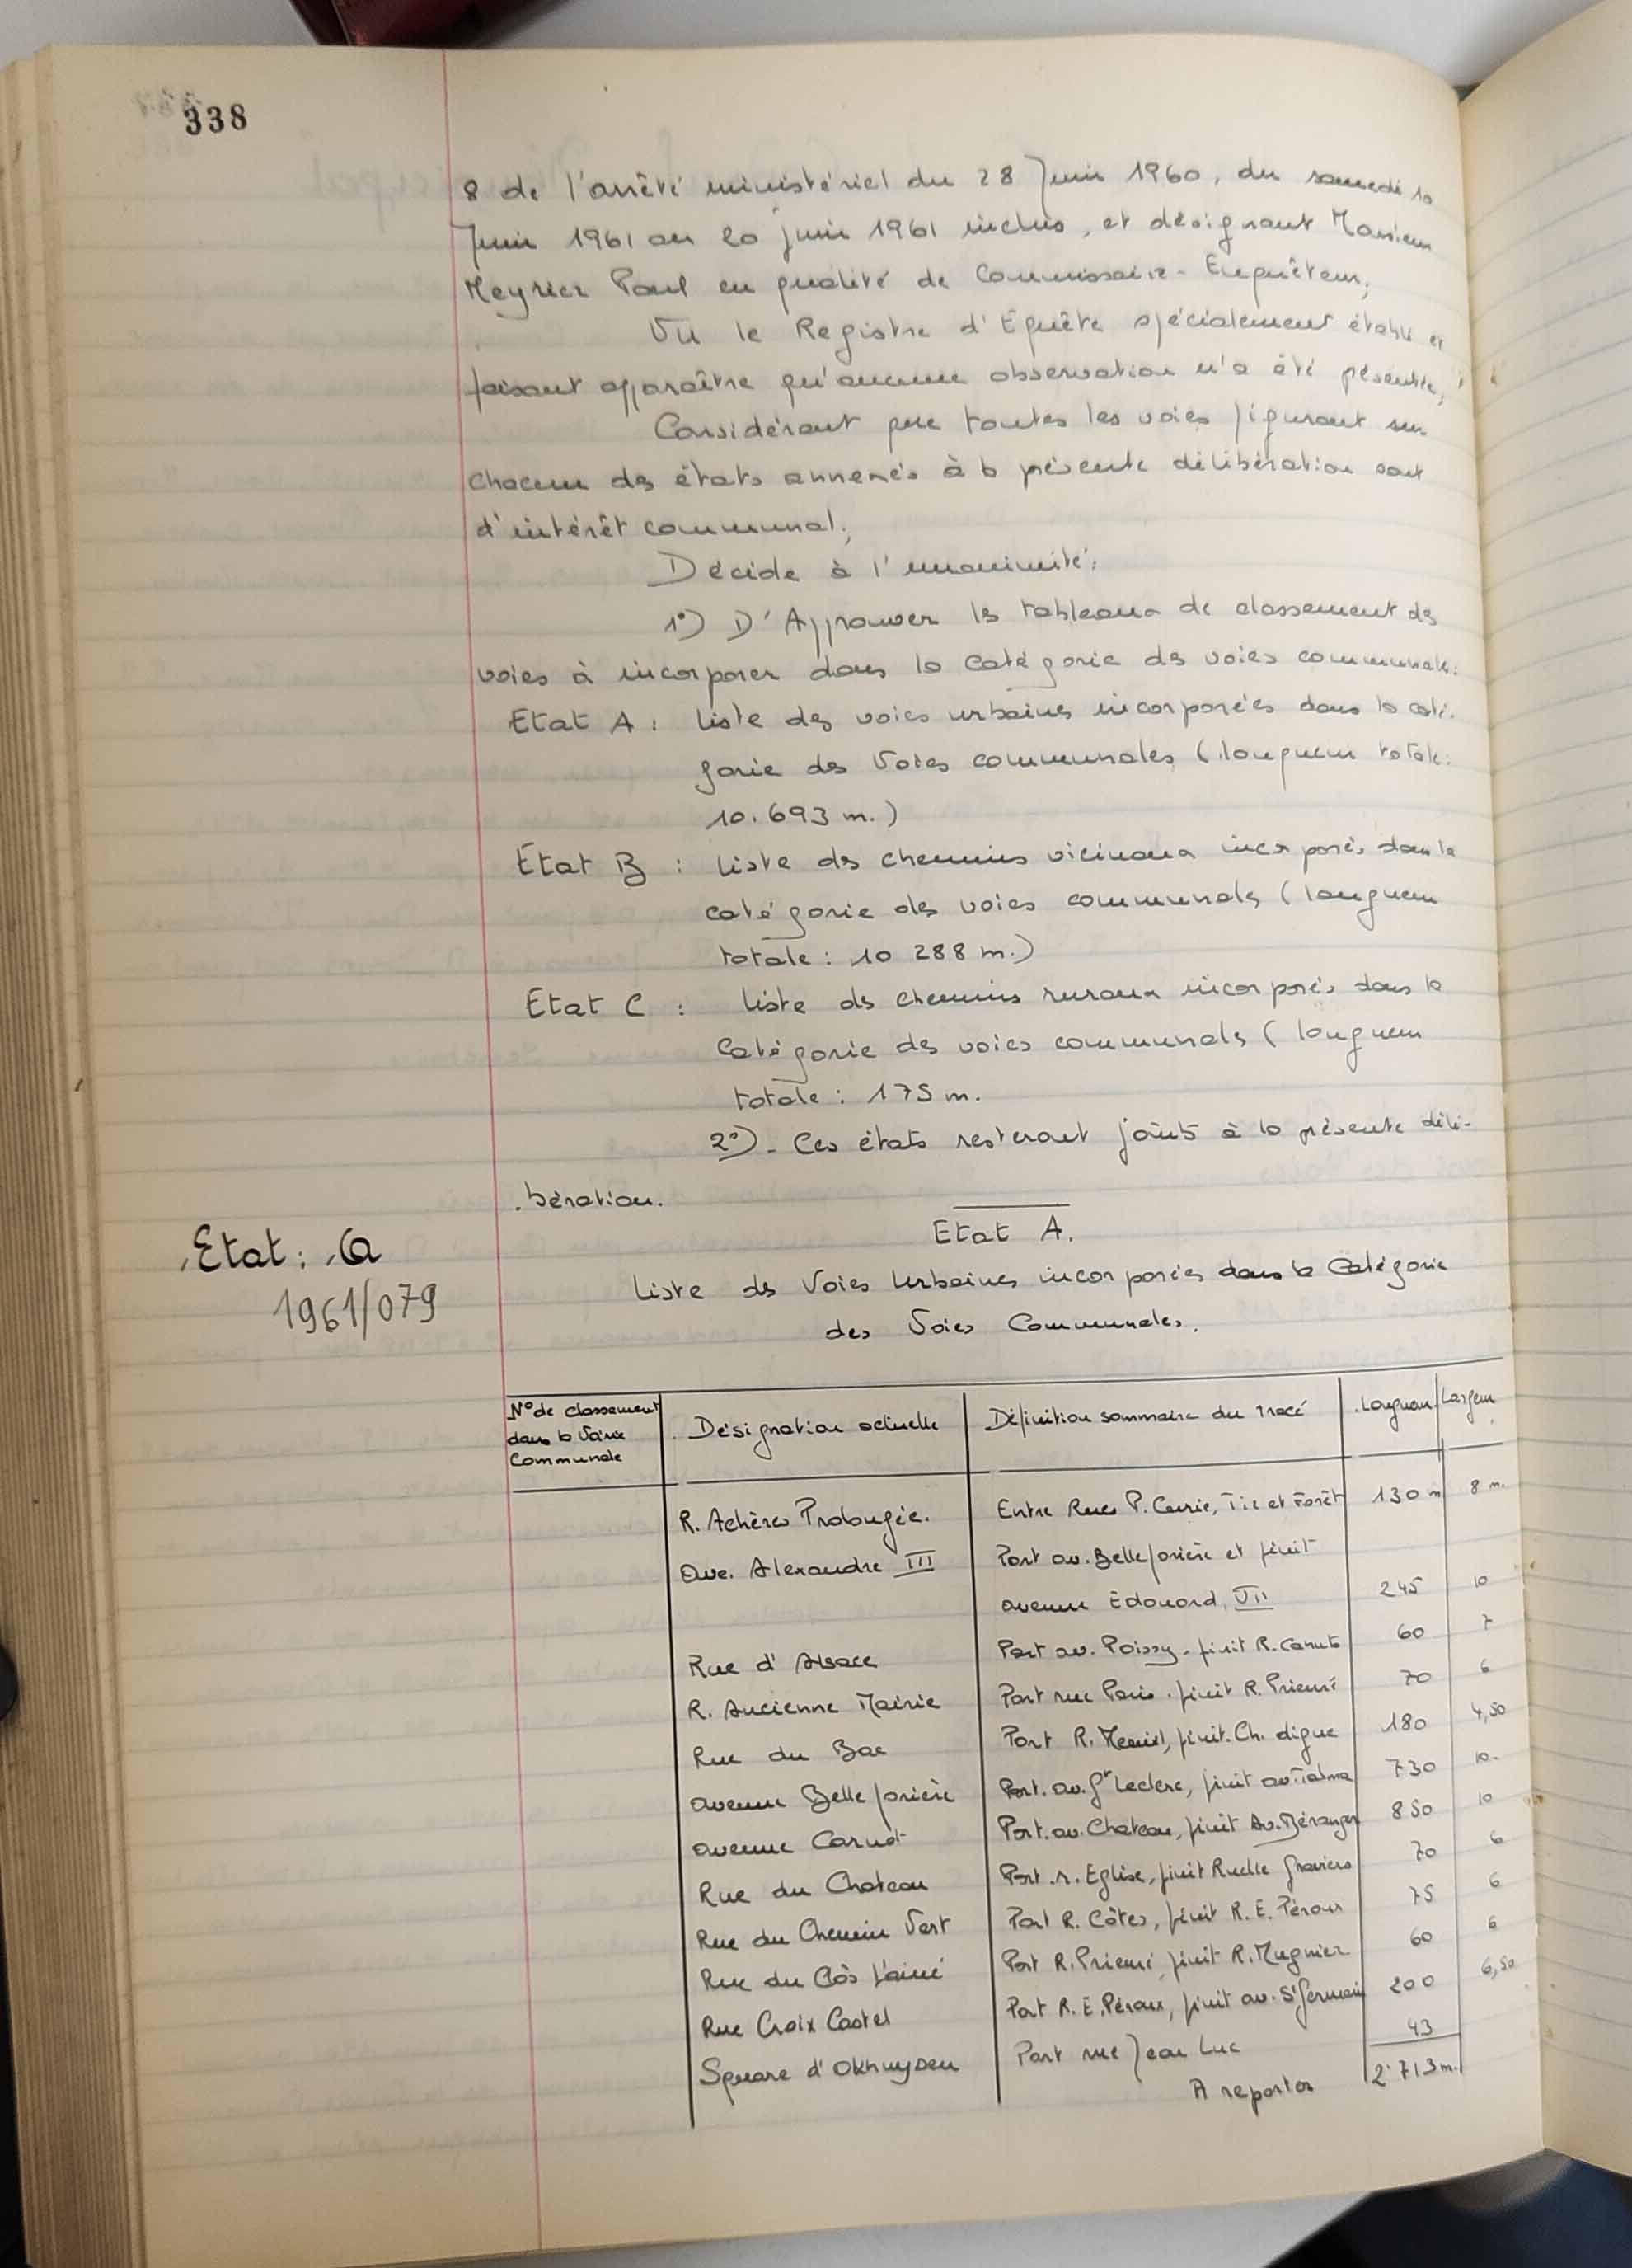 338
8 de l'arrêté ministériel du 28 Juin 1960, du samedi 10
Juin 1961 au 20 juin 1961 inclus, et désignant Monsieur
Meyrier Paul en qualité de Commissaire-Enquêteur;
Vu le Registre d'Equête spécialement établi et
faisant apparaître qu'aucune observation n'a été présentée;
Considérant que toutes les voies figurant sur
chacun des états annexés à la présente délibération sont
d'intérêt communal;
Décide à l'unanimité:
1°) D'Approuver les tableaux de classement des
voies à incorporer dans la catégorie des voies communales:
Etat A : liste des voies urbaines incorporées dans la caté-
gorie des Voies communales (longueur totale:
10.693 m.)
Etat B : liste des chemins vicinaux incorporés dans la
catégorie des voies communales (longueur
totale : 10 288 m.)
Etat C : liste des chemins ruraux incorporés dans la
Catégorie des voies communales (longueur
totale : 175 m.
2°)- Ces états resteront joints à la présente déli-
bération.
Etat A.
Etat : A
1961/079
Liste des Voies Urbaines incorporées dans la Catégorie
des Voies Communales.
N° de classement dans la Voirie Communale | Désignation actuelle | Définition sommaire du Tracé | Longueur | Largeur
R. Achères Prolongée. | Entre Rues P. Curie, Tir et Forêt | 130 m | 8 m.
Ave. Alexandre III | Part av. Belleforière et finit
avenue Edouard VII | 245 | 10
Rue d'Alsace | Part av. Poissy, finit R. Canuts | 60 | 7
R. Ancienne Mairie | Part rue Paris, finit R. Prieuré | 70 | 6
Rue du Bac | Part R. Mesnil, finit Ch. digue | 180 | 4,50
avenue Belleforière | Part. av. Gal Leclerc, finit av. Talma | 730 | 10
avenue Carnot | Part. av. Chateau, finit Av. Béranger | 850 | 10
Rue du Chateau | Part. r. Eglise, finit Ruelle Graviers | 70 | 6
Rue du Chemin Vert | Part R. Côtes, finit R. E. Péroux | 75 | 6
Rue du Clos l'ainé | Part R. Prieuré, finit R. Mugnier | 60 | 6
Rue Croix Castel | Part R. E. Péroux, finit av. St Germain | 200 | 6,50
Square d'Okhuysen | Part rue Jean Luc | 43
A reporter | 2.713 m.